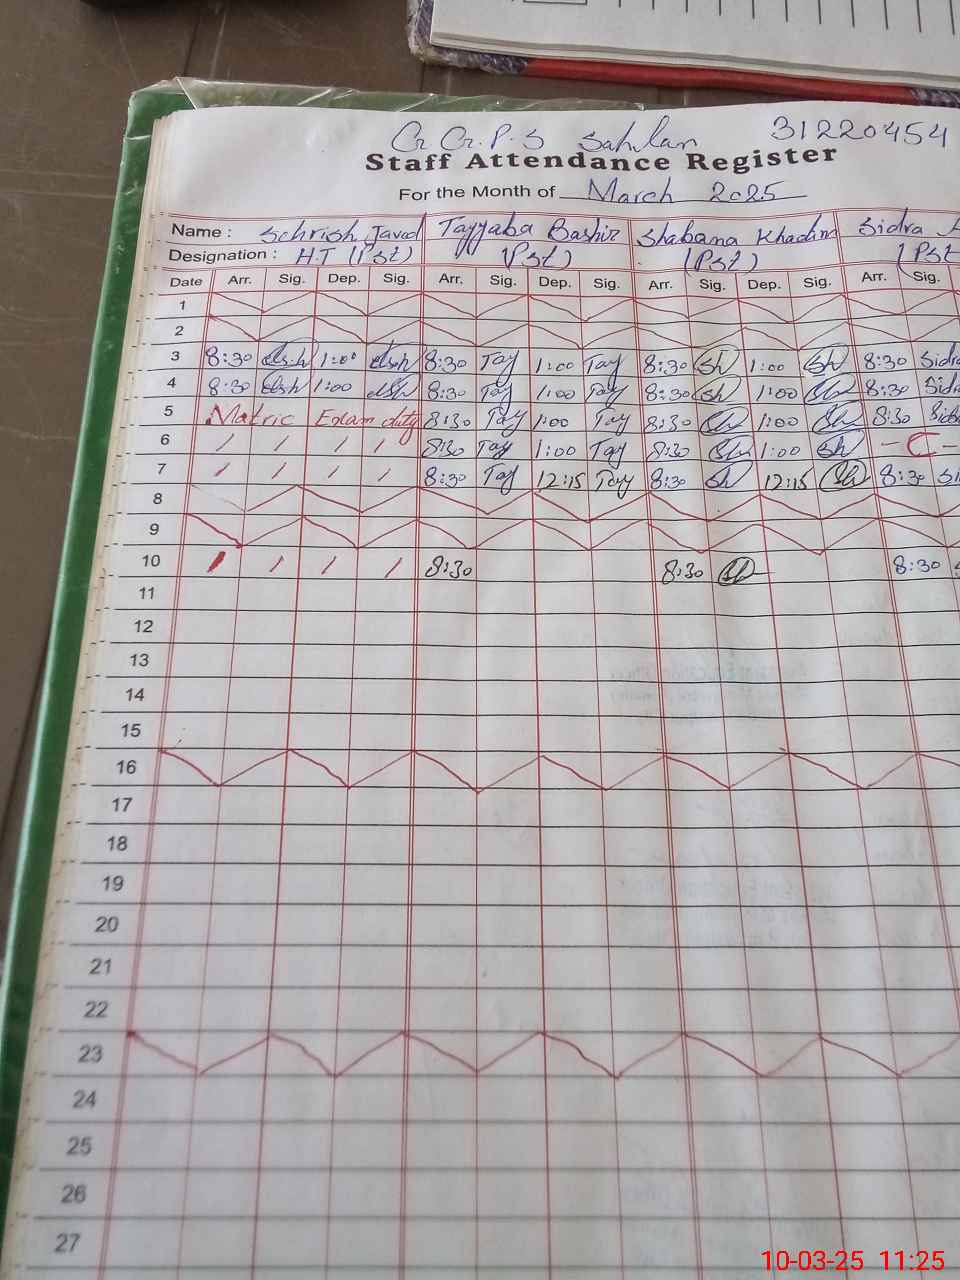 G G.P.S Sahlan 31220454
Staff Attendance Register
For the Month of March 2025
Name : Sehrish Javed Tayyaba Bashir Shabana Khadim Sidra
Designation : H.T (Pst) (Pst) (Pst) (Pst
Date Arr. Sig. Dep. Sig. Arr. Sig. Dep. Sig. Arr. Sig. Dep. Sig. Arr. Sig.
1
2
3 8:30 1:00 8:30 Tay 1:00 Tay 8:30 Sh 1:00 Sh 8:30 Sidra
4 8:30 1:00 8:30 Tay 1:00 Tay 8:30 Sh 1:00 Sh 8:30 Sid
5 Matric Exam duty 8:30 Tay 1:00 Tay 8:30 Sh 1:00 Sh 8:30 Sid
6 / / / / 8:30 Tay 1:00 Tay 8:30 Sh 1:00 Sh - C -
7 / / / / 8:30 Tay 12:15 Tay 8:30 Sh 12:15 Sh 8:30 Si
8
9
10 / / / / 8:30 8:30 Sh 8:30 S
11
12
13
14
15
16
17
18
19
20
21
22
23
24
25
26
27
10-03-25 11:25